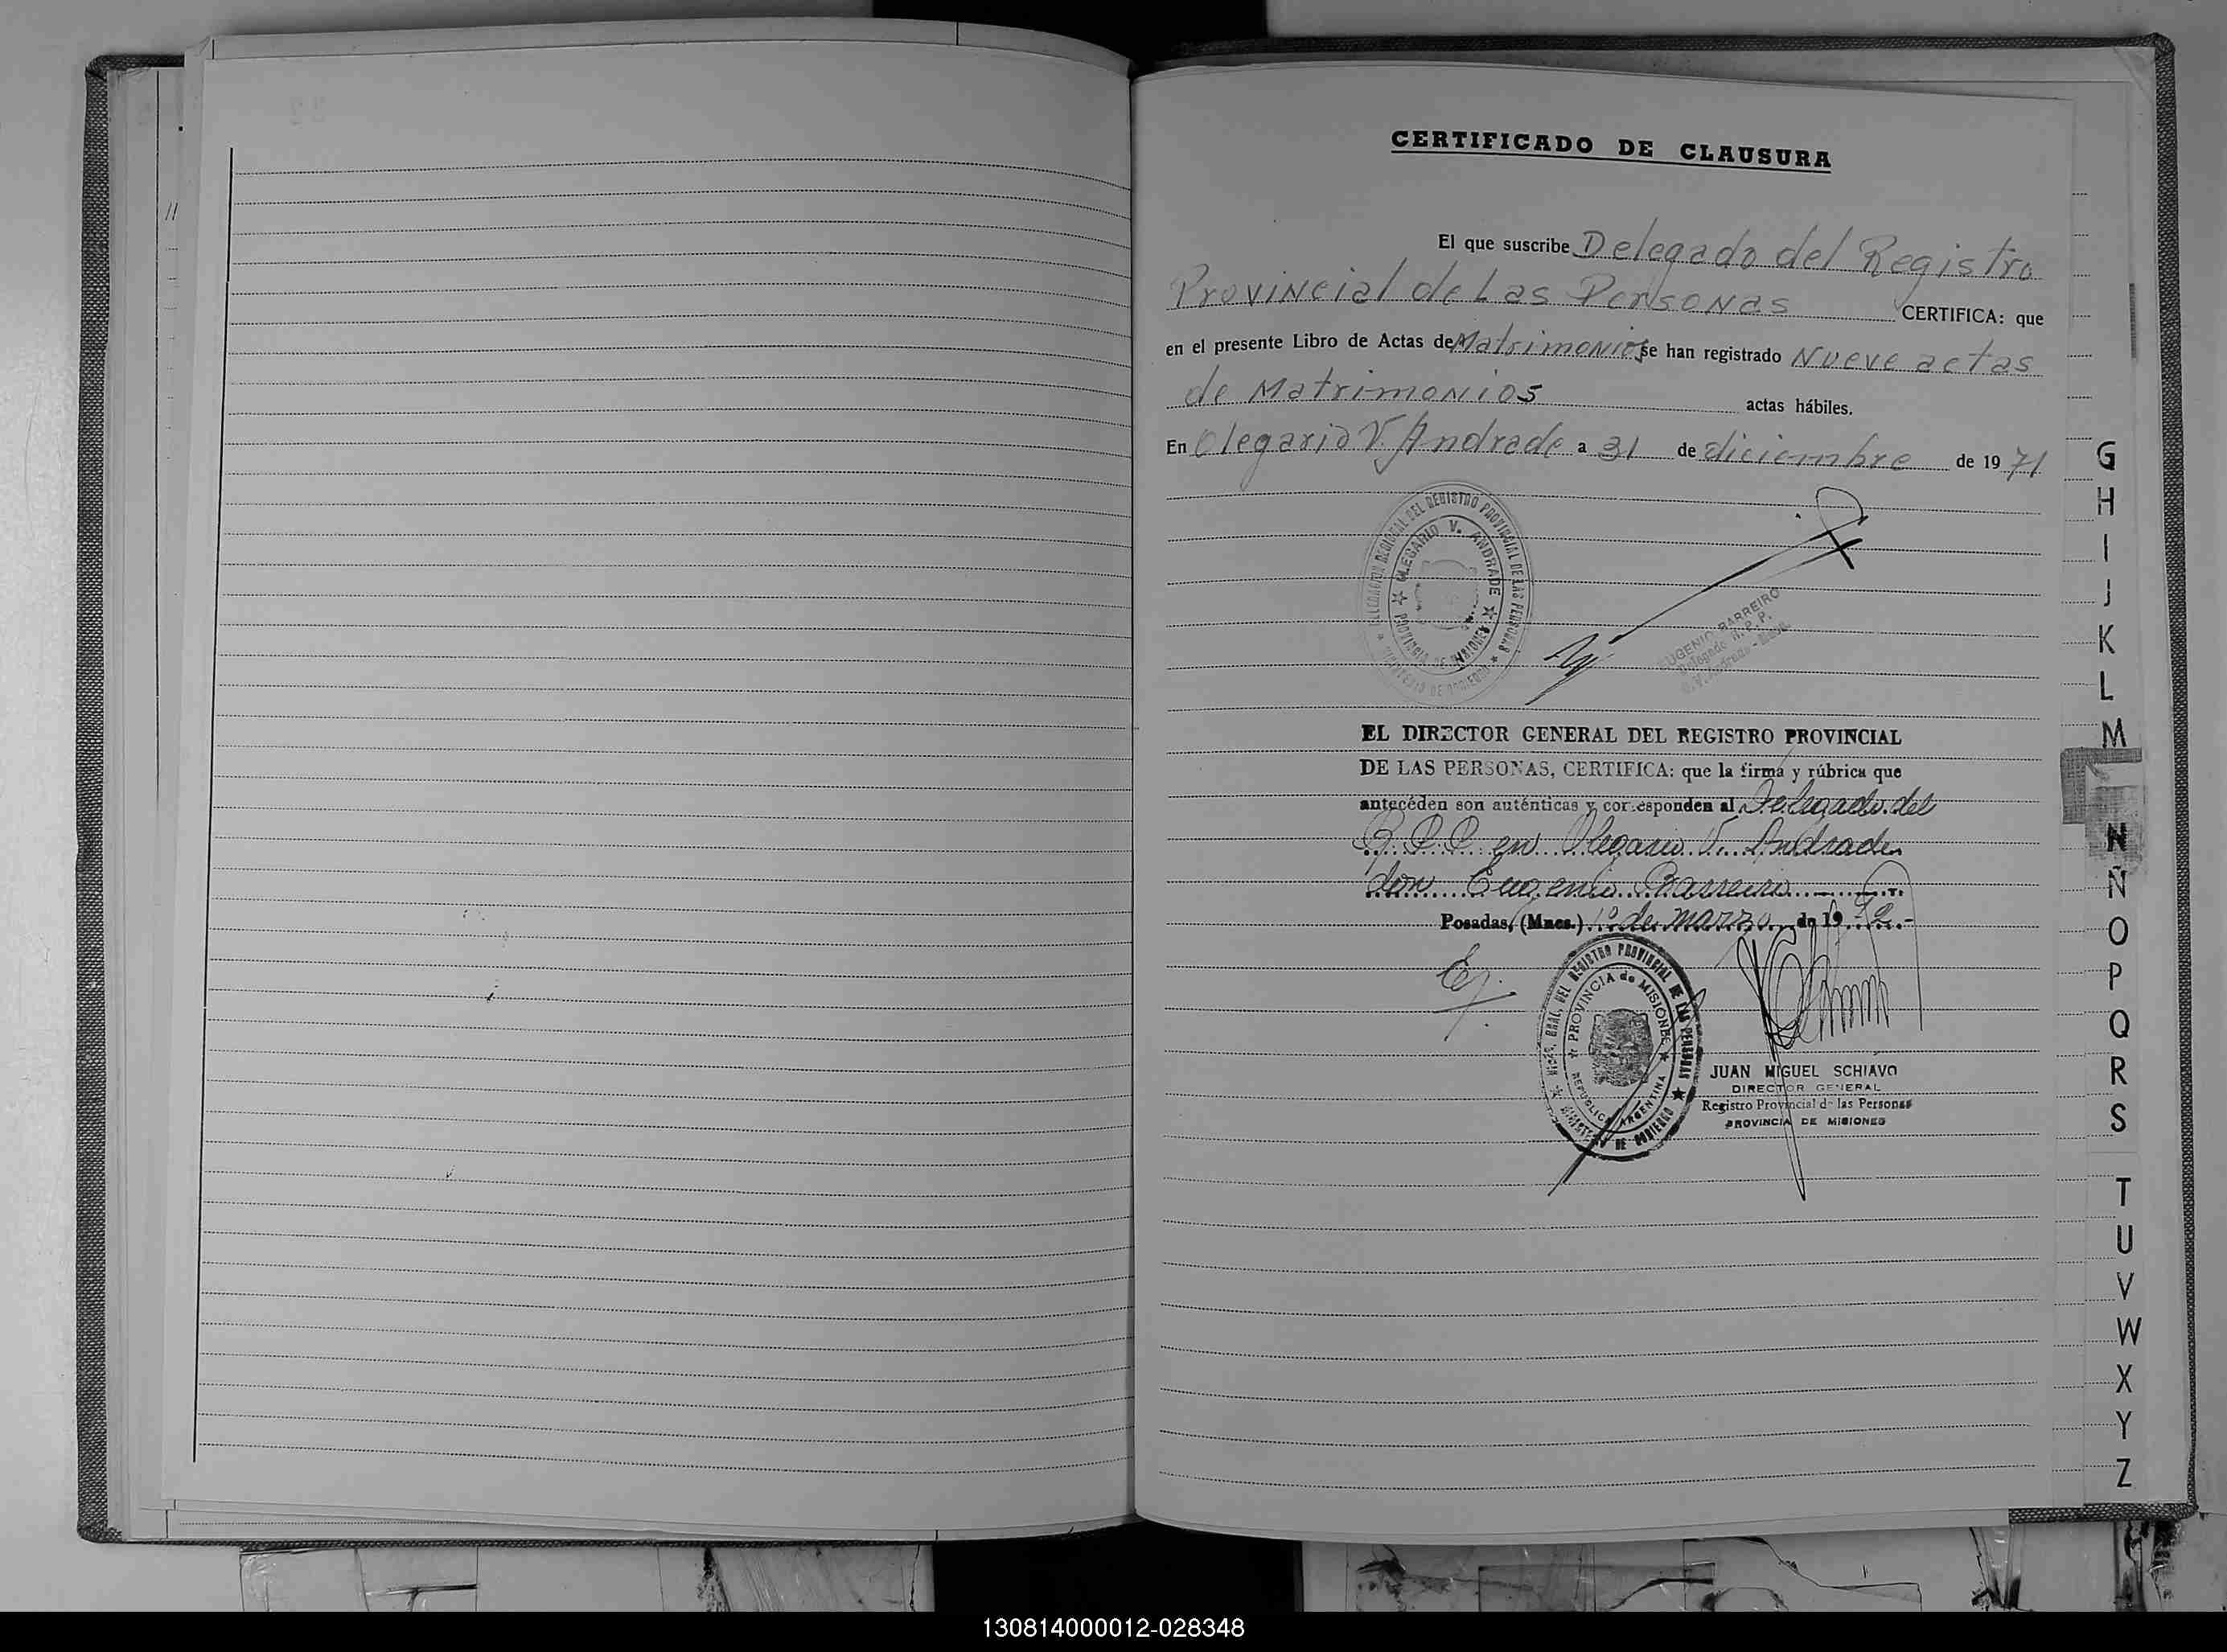 CERTIFICADO DE CLAUSURA
El que suscribe Delegado del Registro
Provincial de Las Personas CERTIFICA: que
en el presente Libro de Actas de Matrimonios se han registrado Nueve actas
de Matrimonios actas hábiles.
En Olegario V. Andrade a 31 de diciembre de 1971
DELEGACION REGIONAL DEL REGISTRO PROVINCIAL DE LAS PERSONAS
MINISTERIO DE GOBIERNO
OLEGARIO V. ANDRADE
PROVINCIA DE MISIONES
EUGENIO BARREIRO
Delegado R. P. P.
EL DIRECTOR GENERAL DEL REGISTRO PROVINCIAL
DE LAS PERSONAS, CERTIFICA: que la firma y rúbrica que
antecéden son auténticas y corresponden al Delegado del
R.P.P. en Olegario V. Andrade
don Eugenio Barreiro
Posadas, (Mnes.) 1º de marzo de 1972.-
DIREC. GRAL. DEL REGISTRO PROVINCIAL DE LAS PERSONAS
MINISTERIO DE GOBIERNO
PROVINCIA de MISIONES
REPUBLICA ARGENTINA
JUAN MIGUEL SCHIAVO
DIRECTOR GENERAL
Registro Provincial de las Personas
PROVINCIA DE MISIONES
G
H
I
J
K
L
M
N
Ñ
O
P
Q
R
S
T
U
V
W
X
Y
Z
130814000012-028348